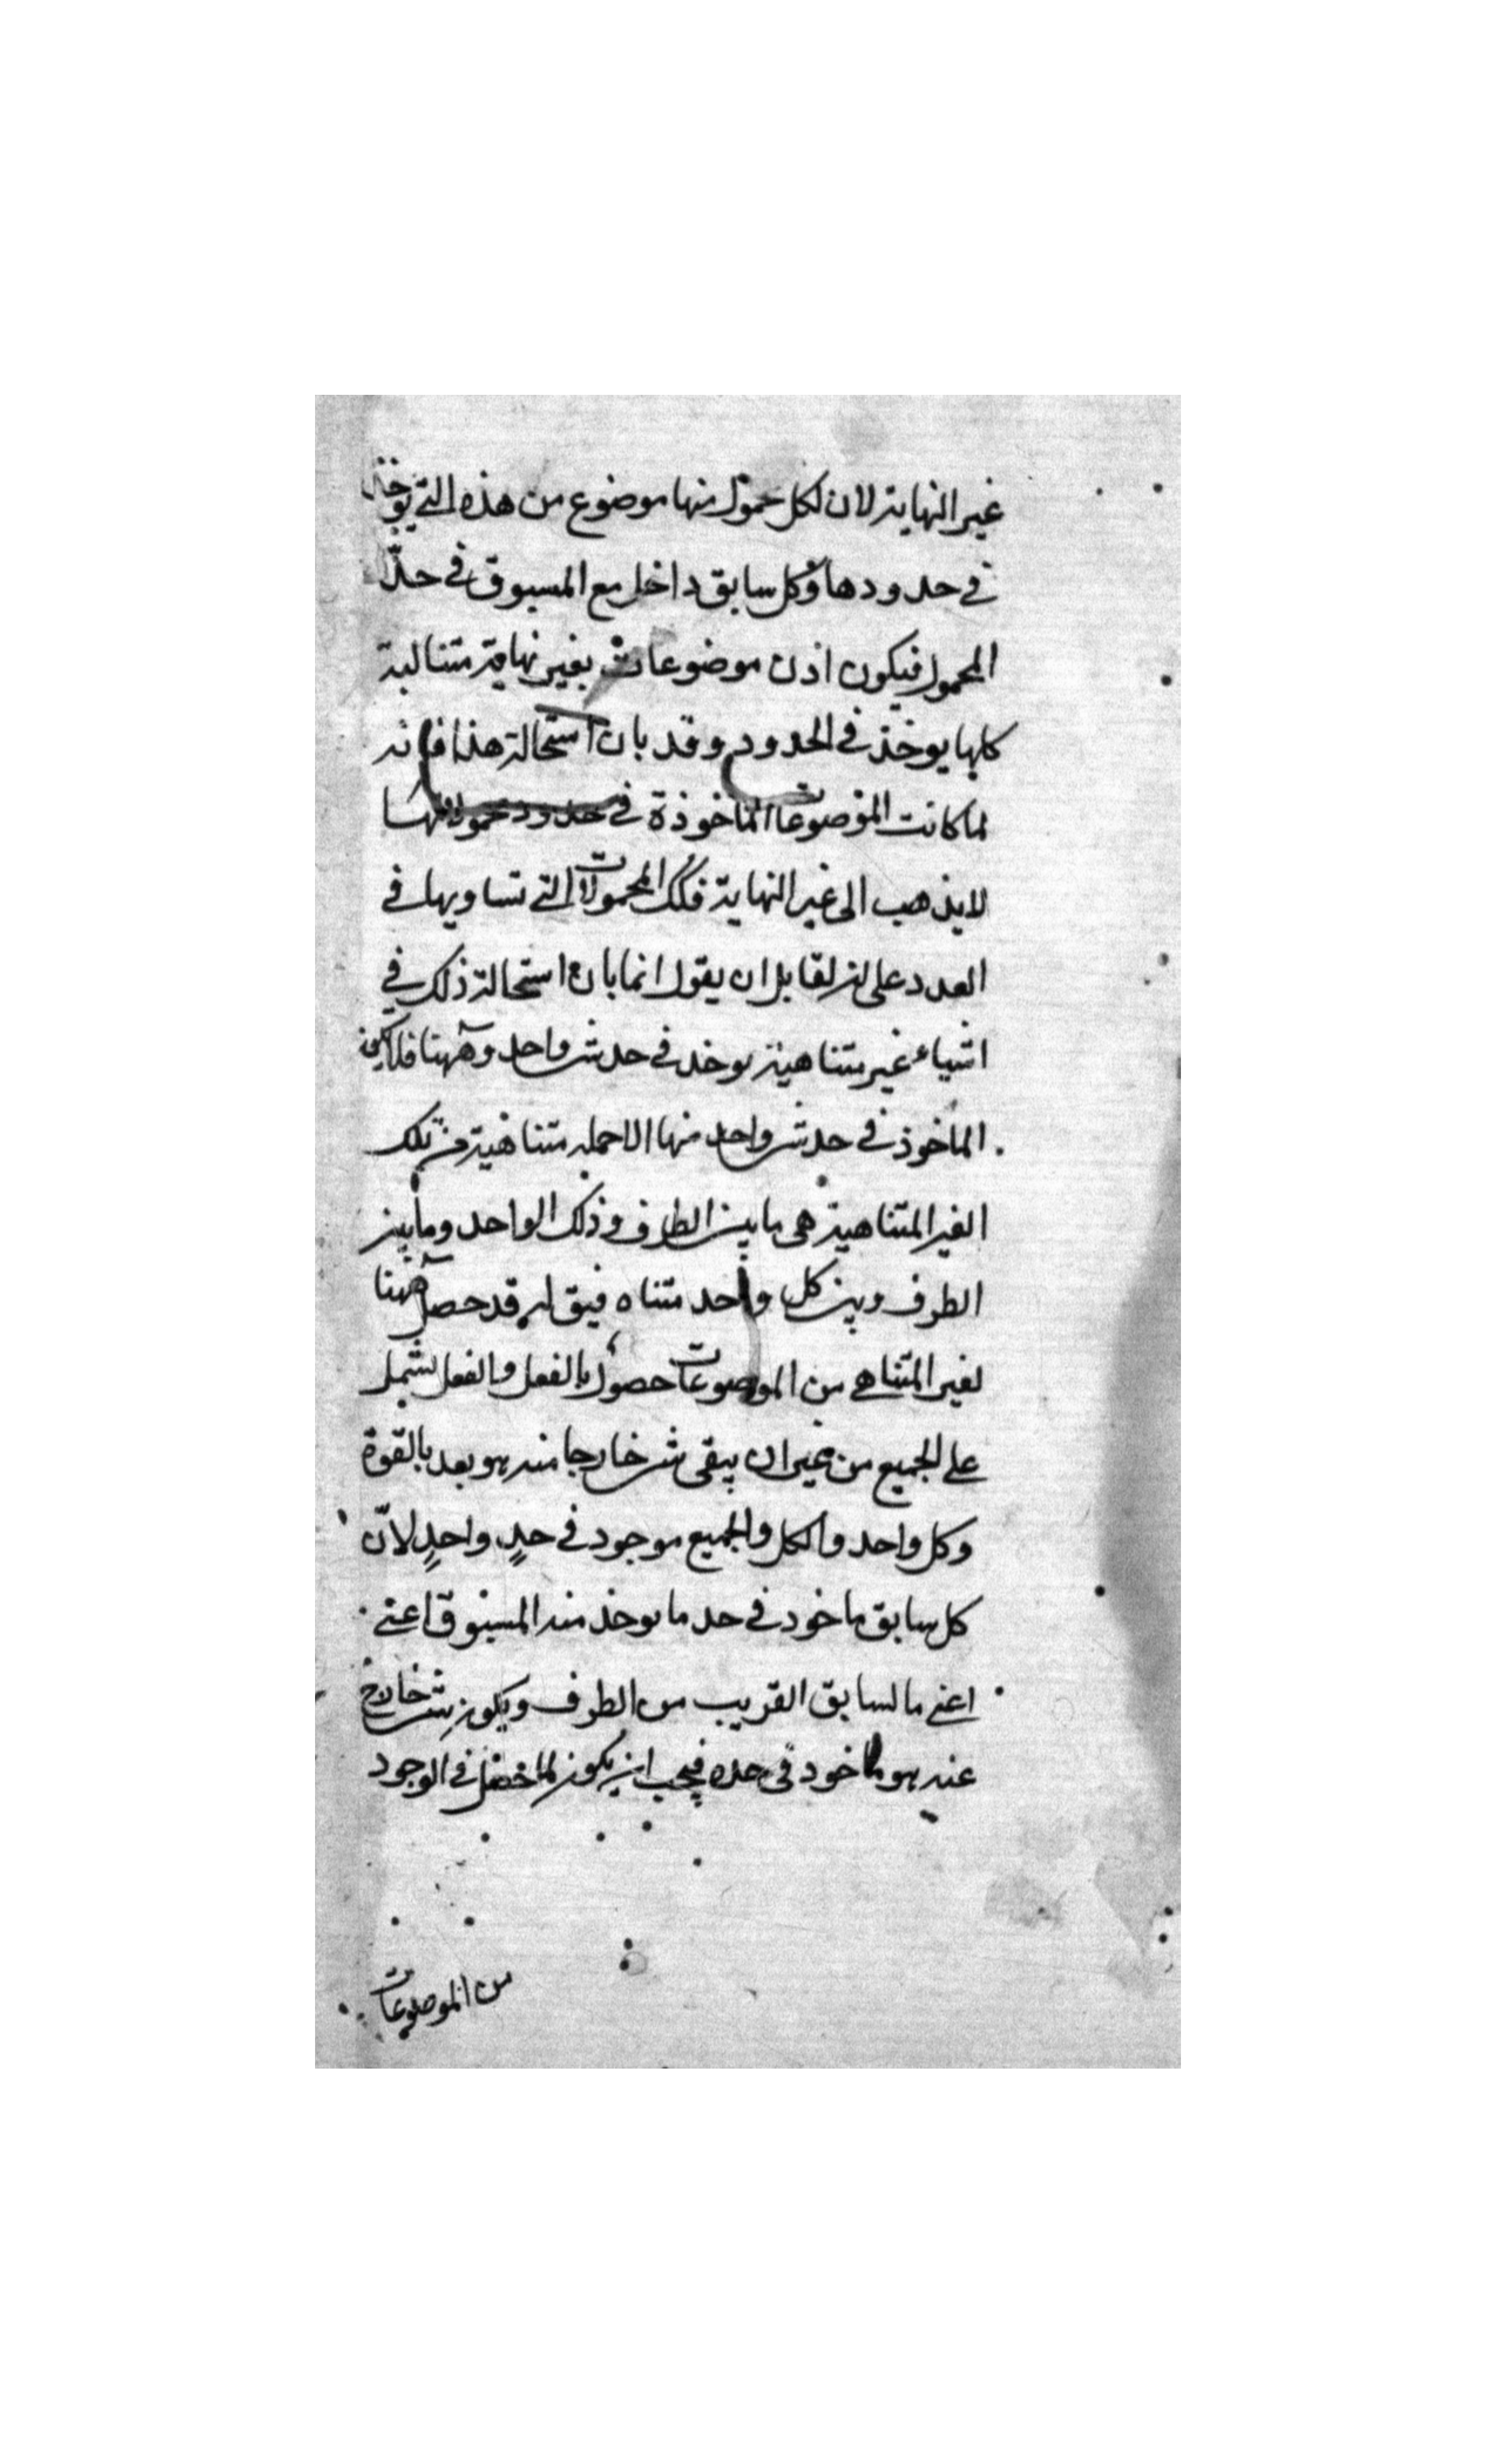 غير النهاية لان لكل محمول منها موضوع من هذه التى يوخذ
فى حدودها وكل سابق داخل مع المسبوق فى حدّ
المحمول فيكون اذن موضوعات بغير نهاية متتالية
كلها يوخذ فى الحدود وقد بان استحالة هذا فانه
لما كانت الموضوعات الماخوذة فى حدود محمولاتها
لا يذهب الى غير النهاية فكك المحمولات التى تساويها فى
العدد على انه لقايل ان يقول انما بان استحالة ذلك فى
اشياء غير متناهية يوخذ فى حد شى واحد وههنا فلا يكون
الماخوذ فى حد شى واحد منها الا جملة متناهية من تلك
الغير المتناهية هى ما بين الطرف وذلك الواحد وما بين
الطرف وبين كل واحد متناه فيق له قد حصل ههنا
لغير المتناهى من الموضوعات حصول بالفعل والفعل يشتمل
على الجميع من غير ان يبقى شى خارجا منه هو بعد بالقوة
وكل واحد والكل والجميع موجود فى حدٍ واحدٍ لانّ
كل سابق ماخوذ فى حد ما يوخذ منه المسبوق اعنى
اعنى بالسابق القريب من الطرف ويكون شى خارج
عنه هو ماخوذ فى حده فيجب ان يكون لما حصل فى الوجود
من الموضوعات